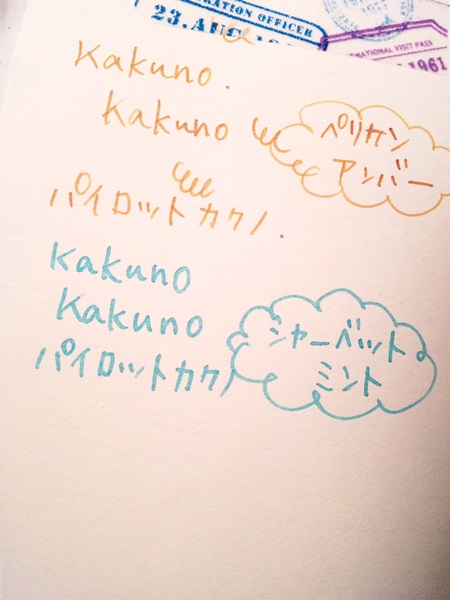 RATION OFFICER
23. AUG
1977
NATIONAL VISIT PASS
1961
Kakuno.
Kakuno
ペリカン
アンバー
パイロットカクノ.
Kakuno
Kakuno
シャーベット
ミント
パイロットカクノ